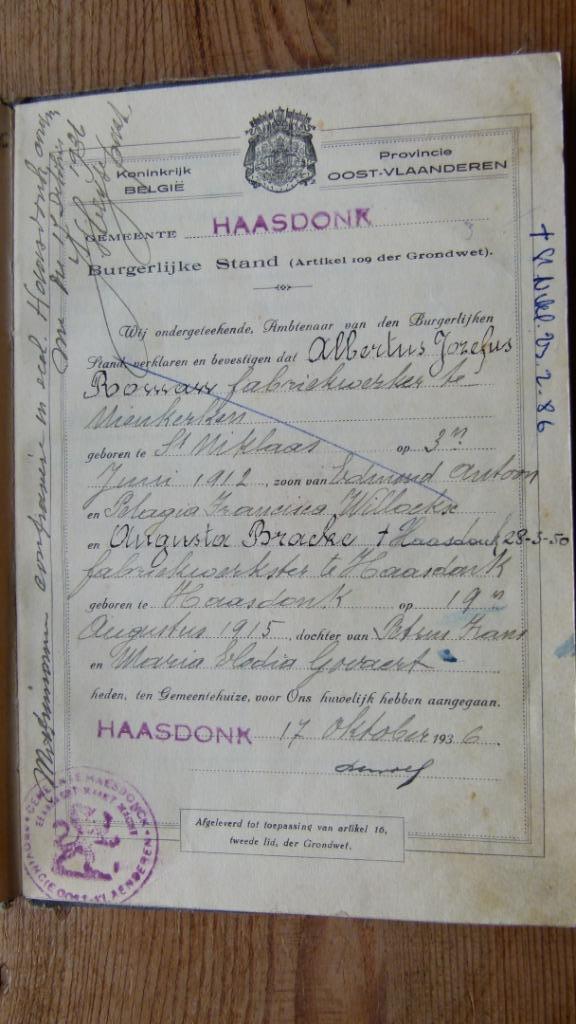 Koninkrijk
BELGIE
Provincie
OOST-VLAANDEREN
GEMEENTE HAASDONK
Burgerlijke Stand (Artikel 109 der Grondwet).
Wij ondergeteekende, Ambtenaar van den Burgerlijken
Stand, verklaren en bevestigen dat Albertus Jozefus
Roman fabriekwerker te
Nieukerken
geboren te St Niklaas op 3n
Juni 1912, zoon van Edmond Antoon
en Pelagia Francisca Willockx
en Augusta Bracke + Haasdonk 28-3-50
fabriekwerkster te Haasdonk
geboren te Haasdonk op 19n
Augustus 1915, dochter van Petrus Frans
en Maria Elodia Govaert
heden, ten Gemeentehuize, voor Ons huwelijk hebben aangegaan.
HAASDONK 17 Oktober 1936
Afgeleverd tot toepassing van artikel 16,
tweede lid, der Grondwet.
GEMEENTE HAESDONCK
EENDRACHT MAAKT MACHT
PROVINCIE OOST-VLAENDEREN
+ St Nikl. 23.2.86
Matrimonium in eccl. Haasdonk
die 17 1936